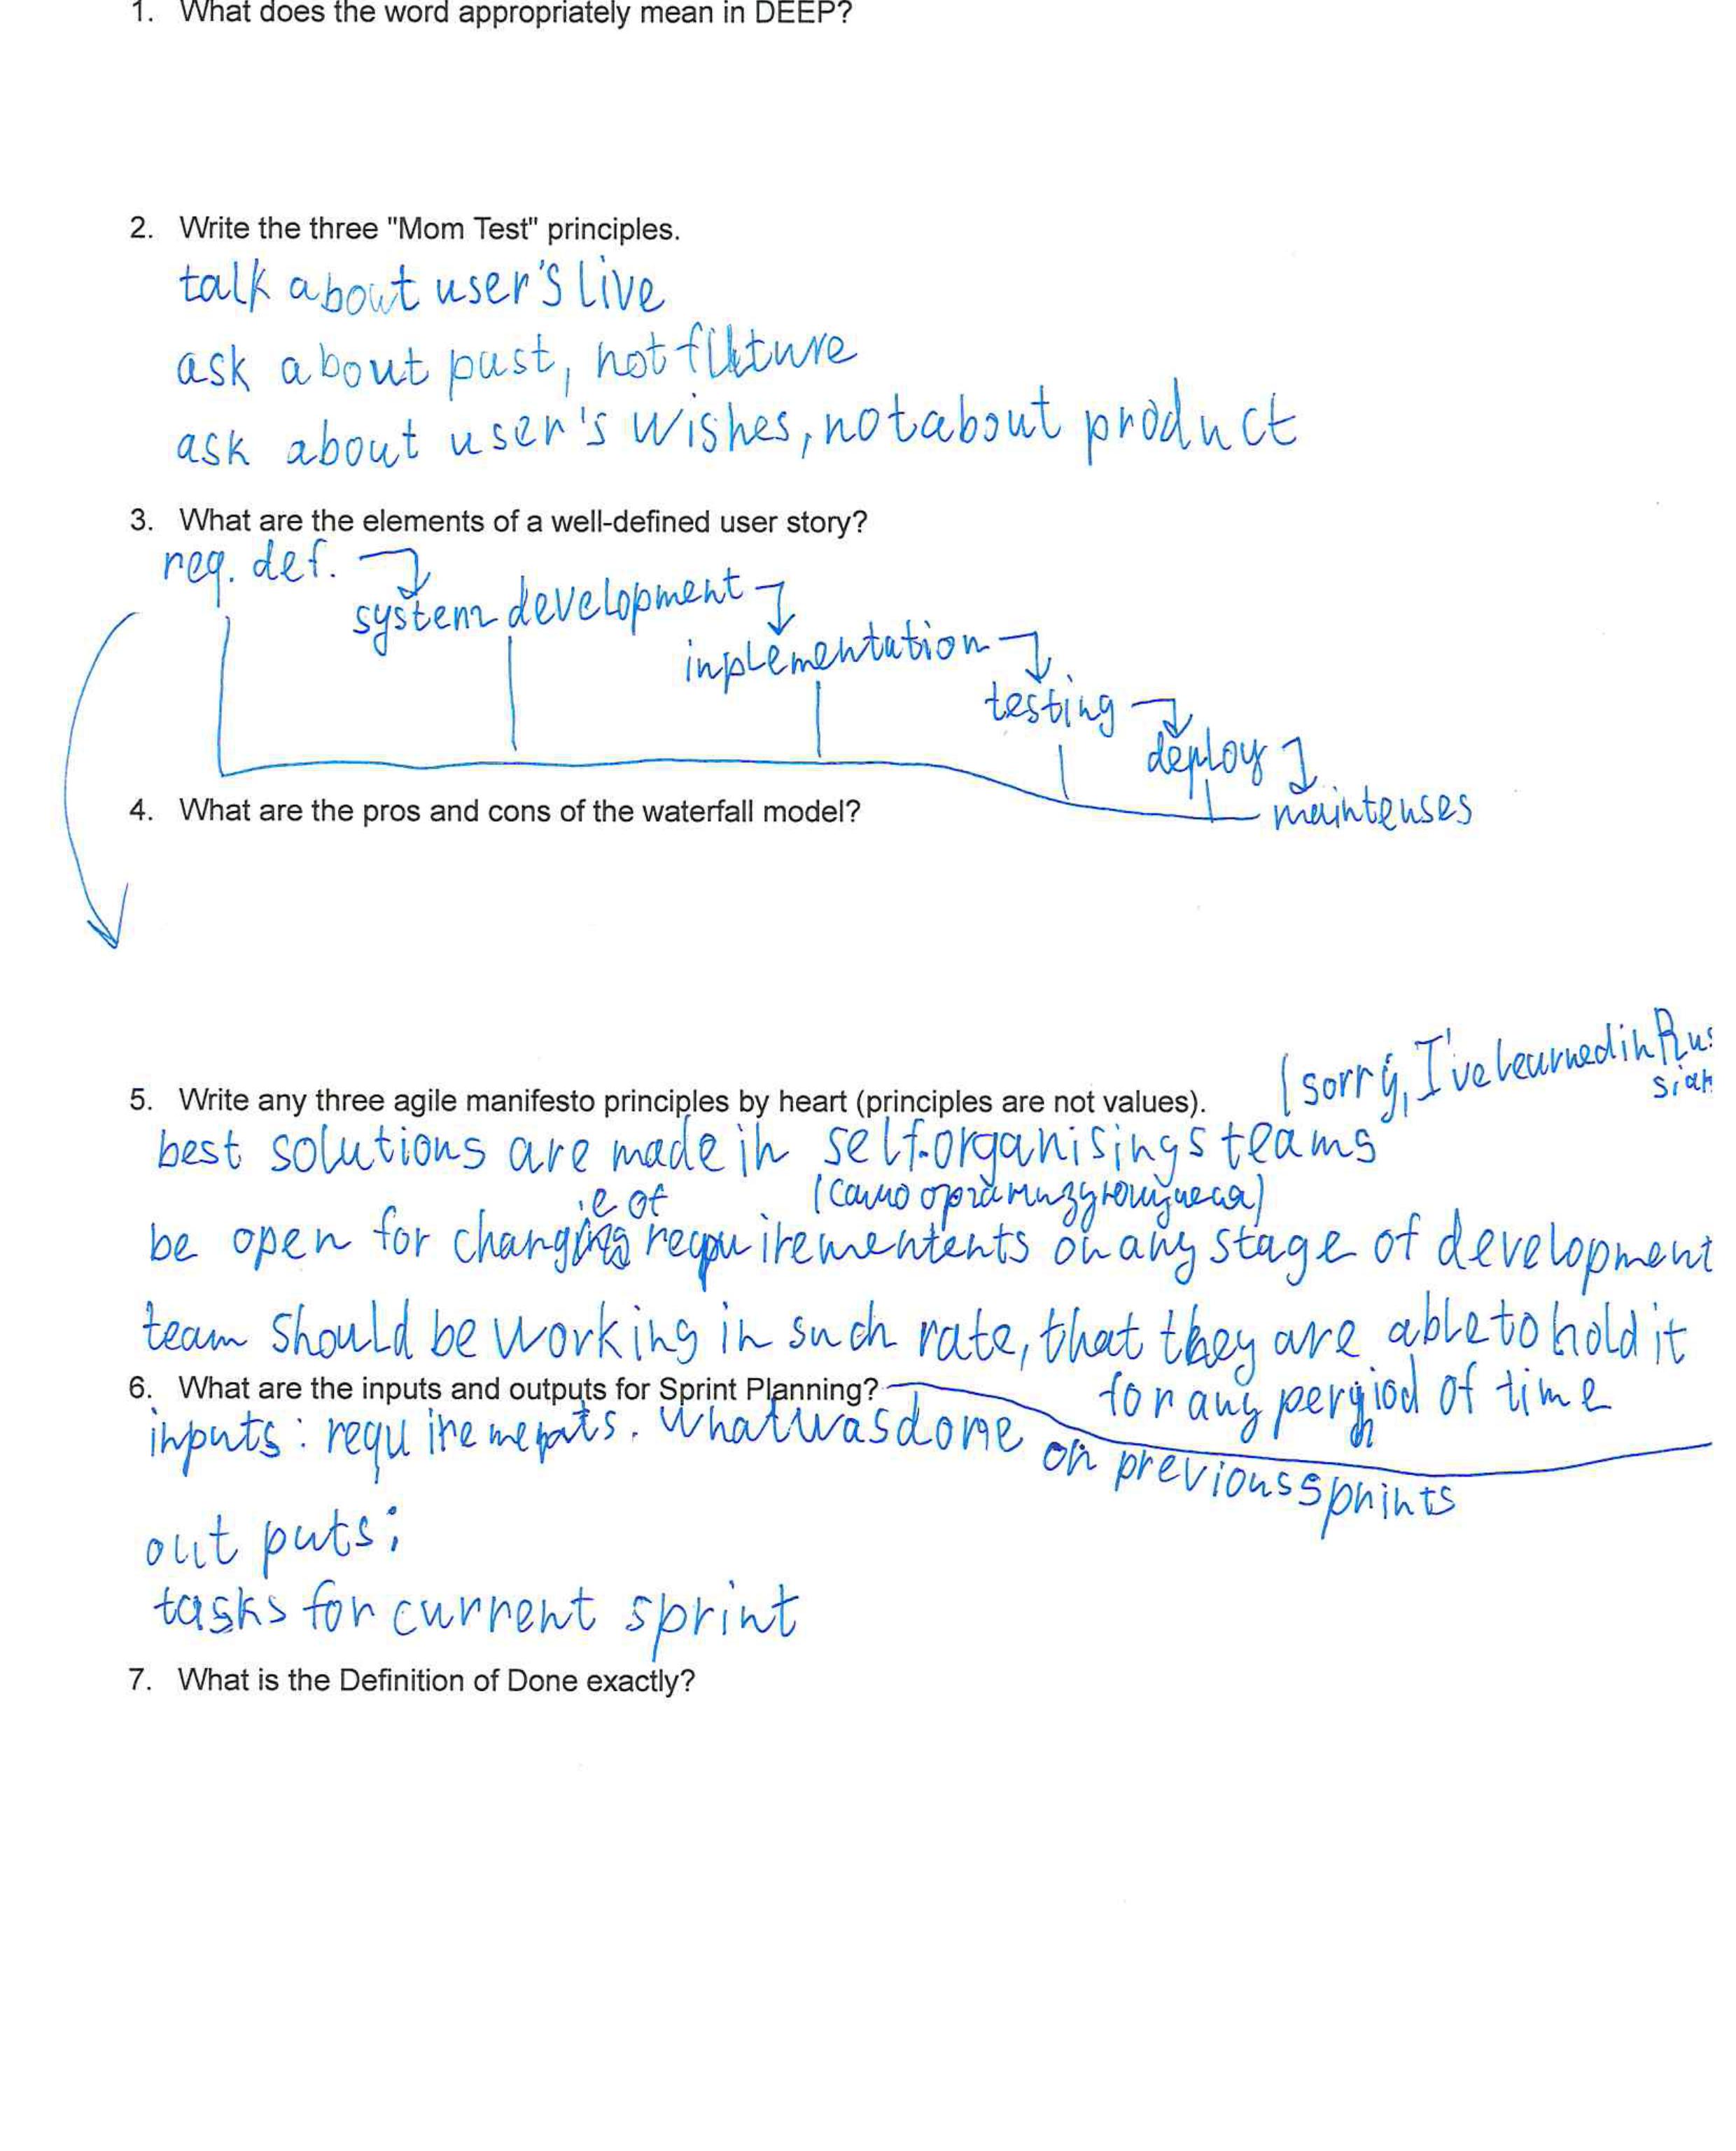 1. What does the word appropriately mean in DEEP?
2. Write the three "Mom Test" principles.
talk about user's live
ask about past, not future
ask about user's wishes, not about product
3. What are the elements of a well-defined user story?
req. def.
system development
inplementation
testing
deploy
maintenses
4. What are the pros and cons of the waterfall model?
(sorry, I've learned in Rus
sian
5. Write any three agile manifesto principles by heart (principles are not values).
best solutions are made in self-organisings teams
(самоорганизующиеся)
be open for change of requirementents on any stage of development
team should be working in such rate, that they are able to hold it
for any period of time
6. What are the inputs and outputs for Sprint Planning?
inputs: requirements. what was done on previous sprints
outputs:
tasks for current sprint
7. What is the Definition of Done exactly?